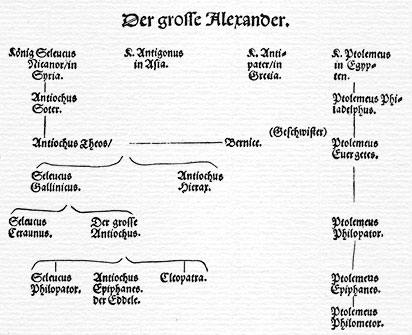 Der grosse Alexander.
König Seleucus
Nicanor/in
Syria.
K. Antigonus
in Asia.
K. Anti-
pater/in
Grecia.
K. Ptolemeus
in Egyp-
ten.
Antiochus
Soter.
Ptolemeus Phi-
ladelphus.
Antiochus Theos/
Bernice.
(Geschwister)
Ptolemeus
Euergetes.
Seleucus
Gallinicus.
Antiochus
Hierax.
Seleucus
Ceraunus.
Der grosse
Antiochus.
Ptolemeus
Philopator.
Seleucus
Philopator.
Antiochus
Epiphanes
der Eddele.
Cleopatra.
Ptolemeus
Epiphanes.
Ptolemeus
Philometor.